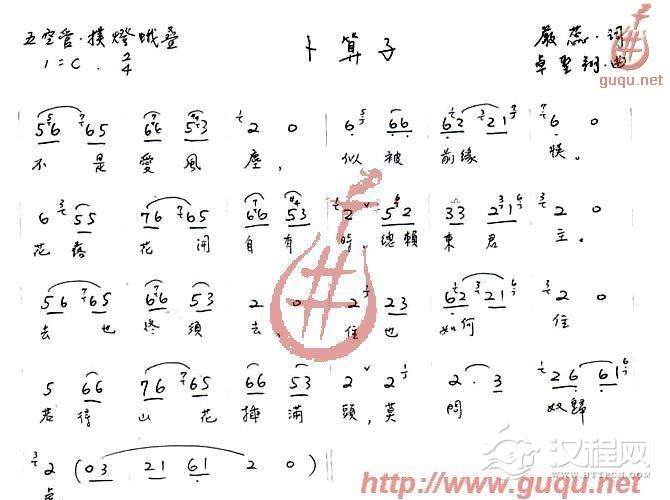 五空管·撲燈蛾疊 卜算子 嚴蕊·词
1=C. 2/4 卓聖翔·曲
guqu.net
56 765 66 53 2 0 6 66 62 321 6 0
不是愛風塵, 似被前缘悮。
6 55 76 765 66 53 2 52 33 21 2 0
花落花開自有時。總賴東君主。
56 765 66 53 2 0 2 23 62 321 2 0
去也終須去, 住也如何住
5 66 76 765 66 53 2 2 2·3 26 61
若待山花插滿頭,莫問奴歸
2 (03 21 61 2 0)
汉程网
http://www.guqu.net